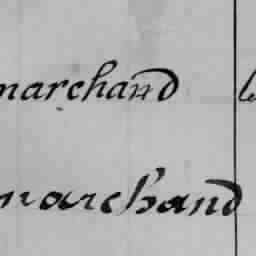 marchand
marchand